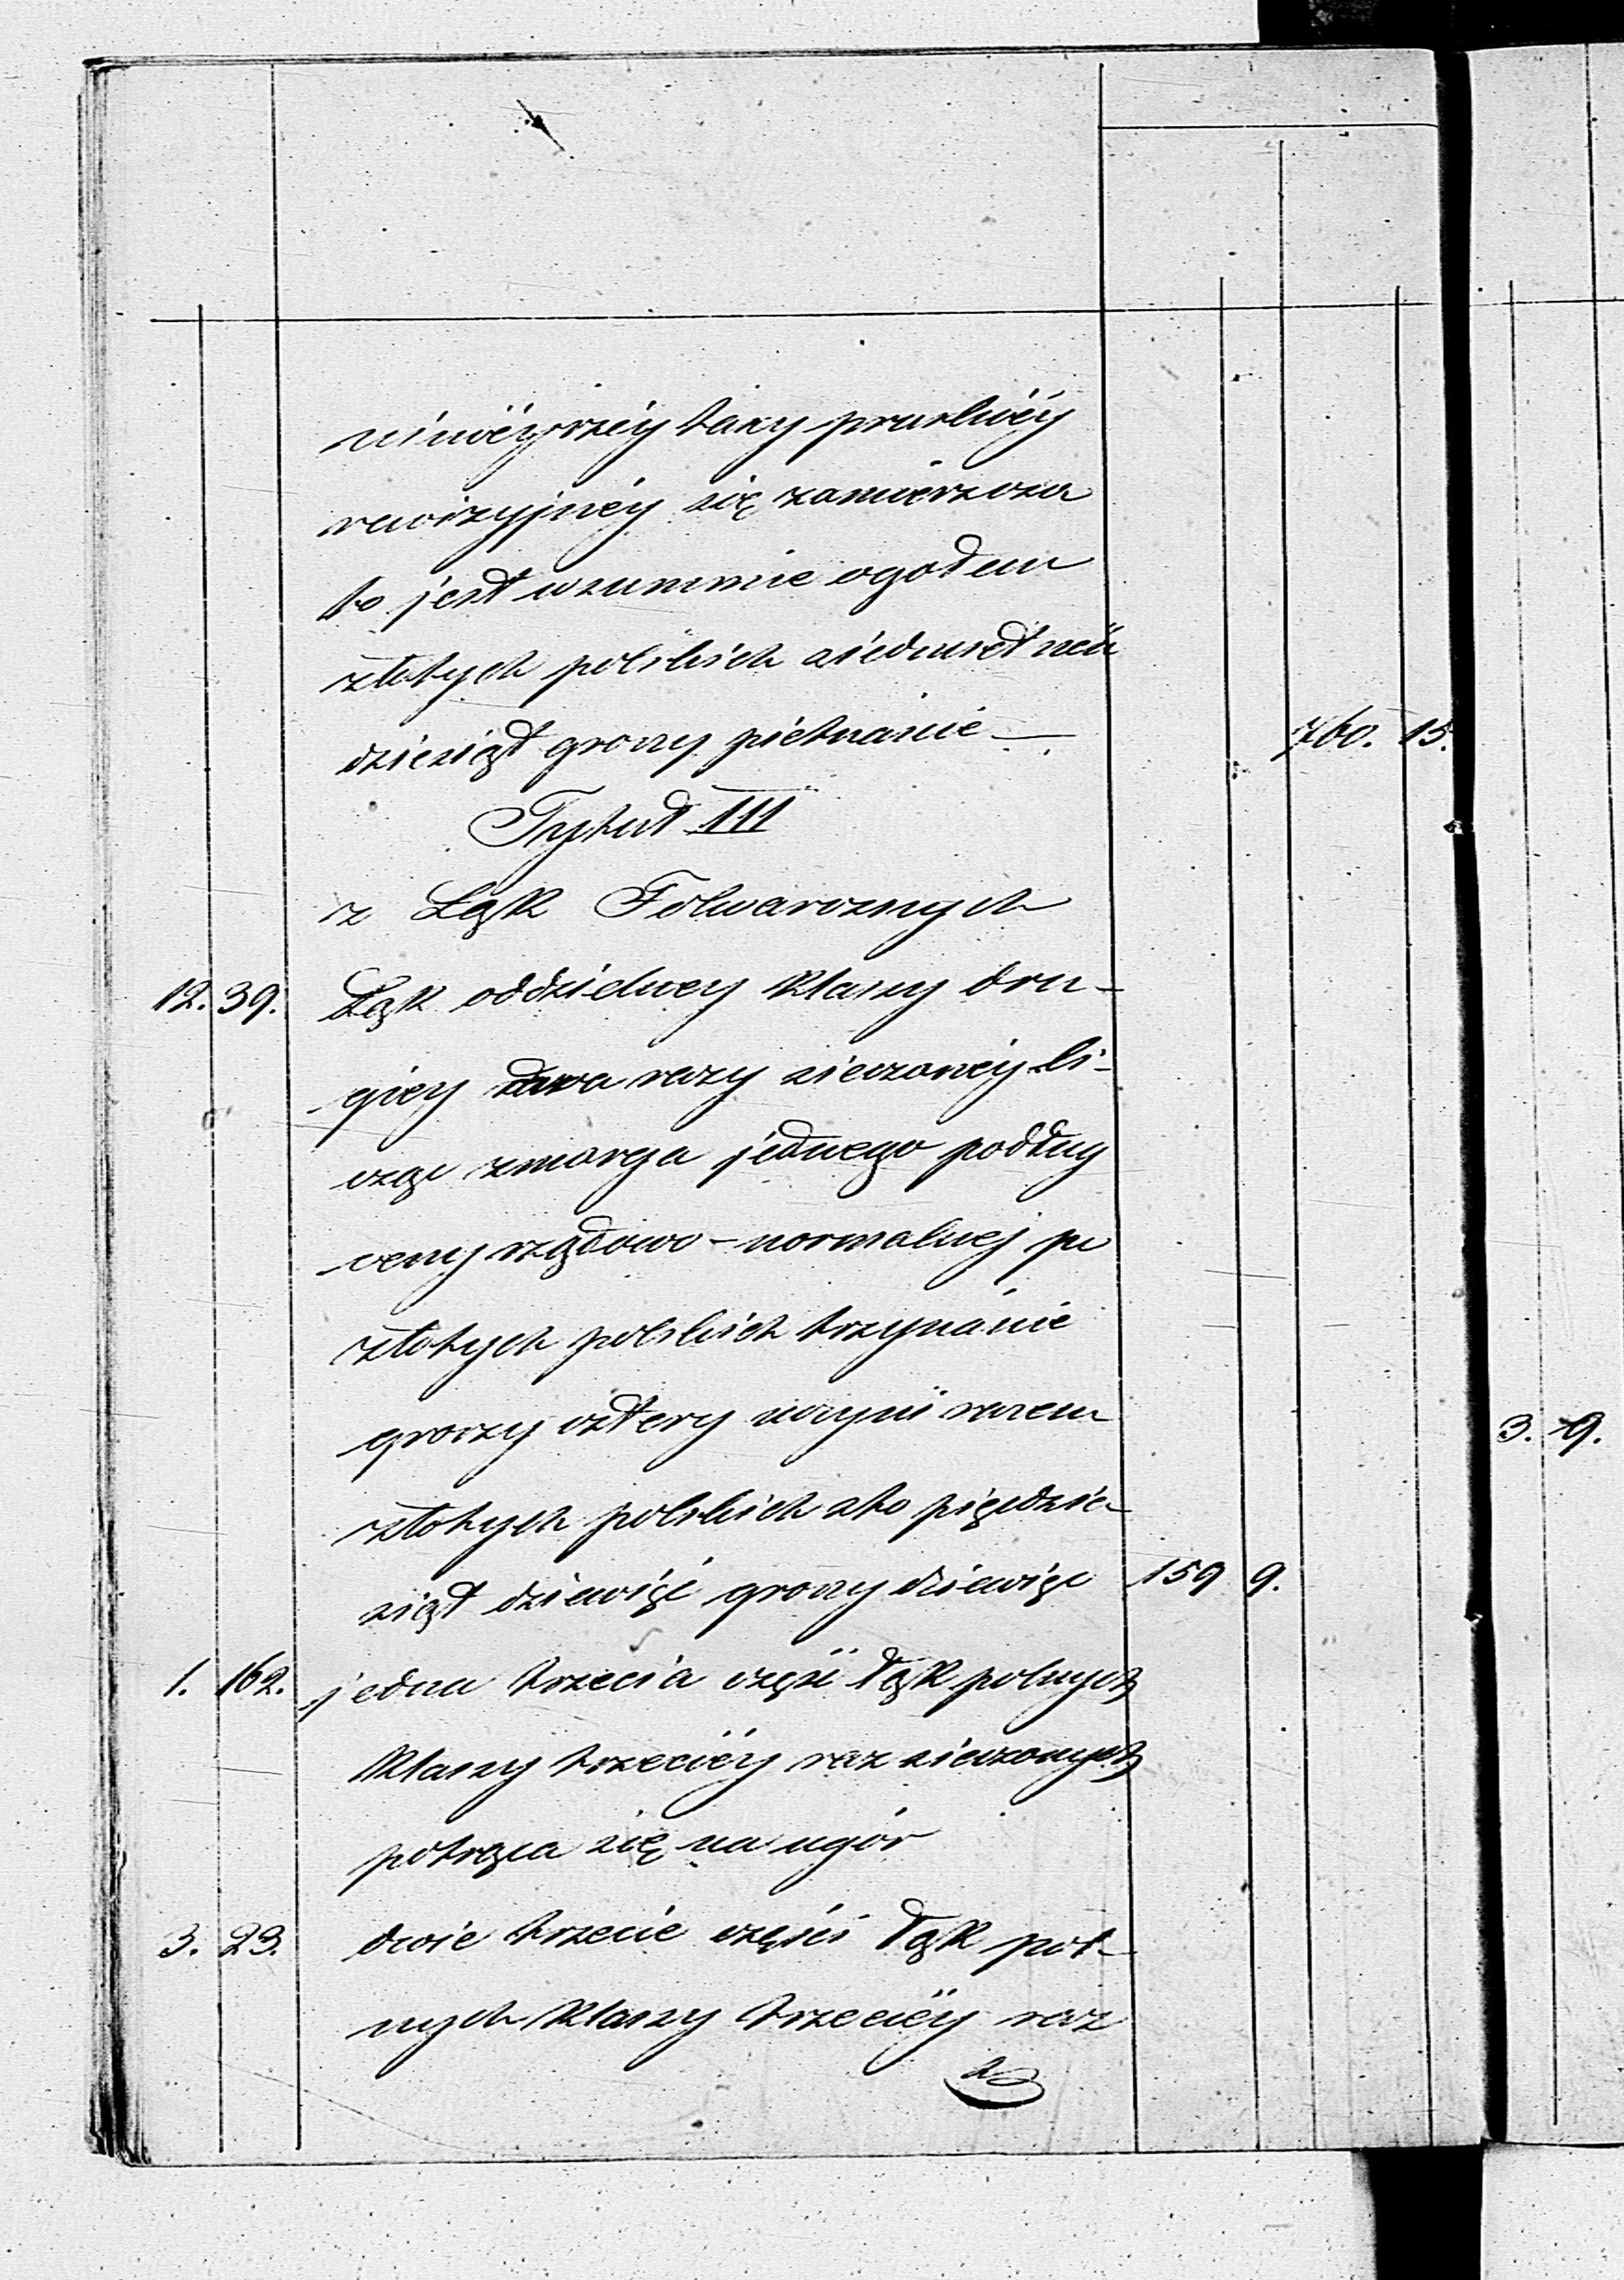 ninieyszéy taxy pruskiéy
rewizyjnéy się zamierzcza
to jest w summie ogołem
złotych polskich siedmset sześć
dziesiąt groszy pietnaście — 760. 15.
Tytuł III
z Łąk Folwarcznych
12. 39. Łąk oddzielney klassy dru-
giey dwa razy sieczonéy li-
cząc z morga jednego podług
ceny rządowo-normalnej po
złotych polskich trzynaście
groszy cztery czyni razem
złotych polskich sto pięćdzie
siąt dziewięć groszy dziewięć 159 9.
1. 162. jedna trzecia część łąk polnych
klassy trzeciéy raz sieczonych
potrąca się na ugór
3. 23. dwie trzecie części łąk pol-
nych klassy trzeciéy raz
3. 9.